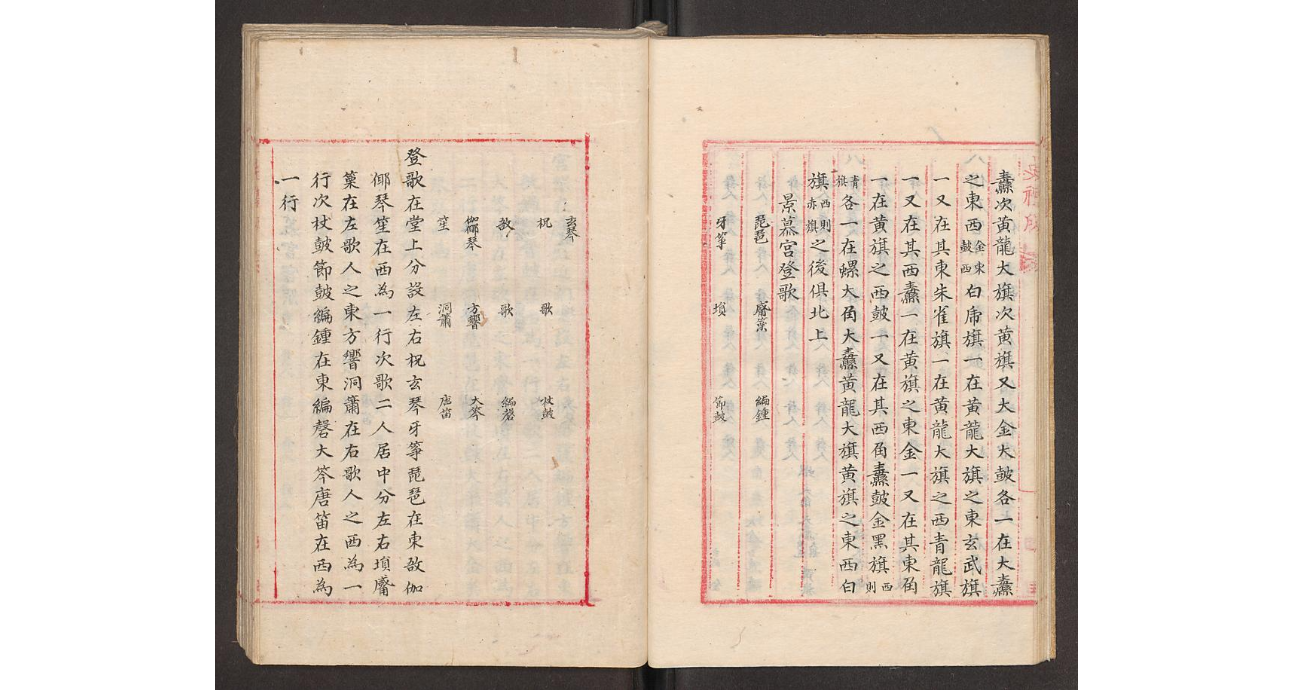 纛次黃龍大旗次黃旗又大金大皷各一在大纛
之東西金東皷西白席旗一在黃龍大旗之東玄武旗
一又在其東朱雀旗一在黃龍大旗之西青龍旗
一又在其西纛一在黃旗之東金一又在其東角
一在黃旗之西皷一又在其西角纛皷金黑旗西則
青旗各一在螺大角大纛黃龍大旗黃旗之東西白
旗西則赤旗之後俱北上
景慕宮登歌
琵琶 觱篥 編鍾
牙箏 塤 節皷
玄琴
柷 歌 杖皷
敔 歌 編磬
伽倻琴 方響 大笒
笙 洞簫 唐笛
登歌在堂上分設左右柷玄琴牙箏琵琶在東敔伽
倻琴笙在西為一行次歌二人居中分左右塤觱
篥在左歌人之東方響洞簫在右歌人之西為一
行次杖皷節皷編鍾在東編磬大笒唐笛在西為
一行